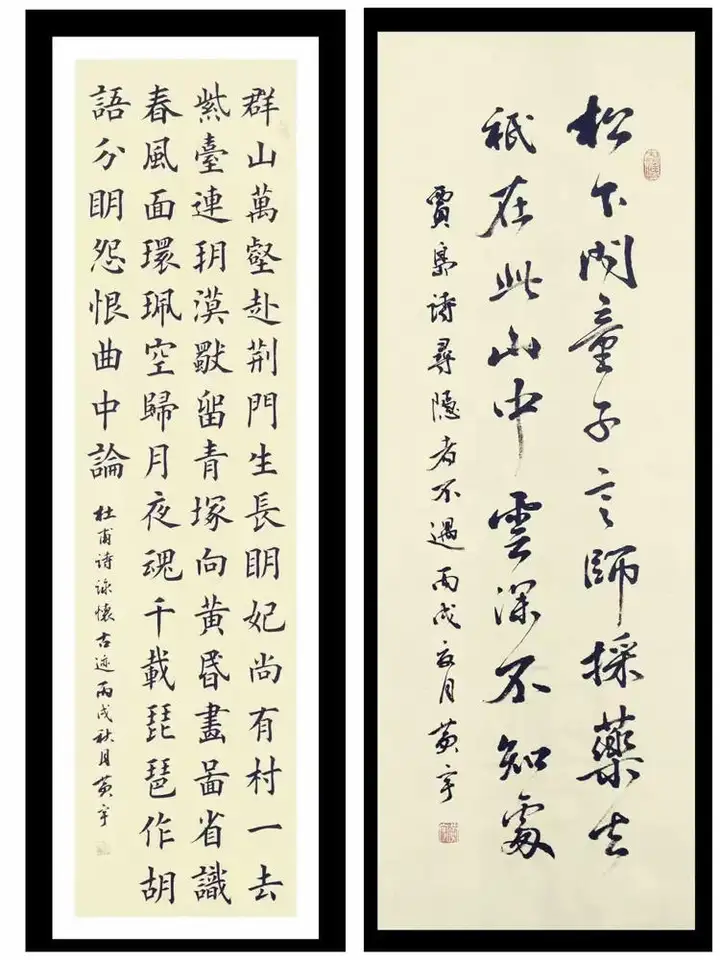 群山萬壑赴荆門生長眀妃尚有村一去
紫臺連朔漠獨留青塚向黄昏畫圖省識
春風面環珮空歸月夜魂千載琵琶作胡
語分眀怨恨曲中論
杜甫詩詠懷古迹丙戌秋月黄宇
松下問童子言師採藥去
祇在此山中雲深不知處
賈島詩尋隱者不遇丙戌夏月黄宇